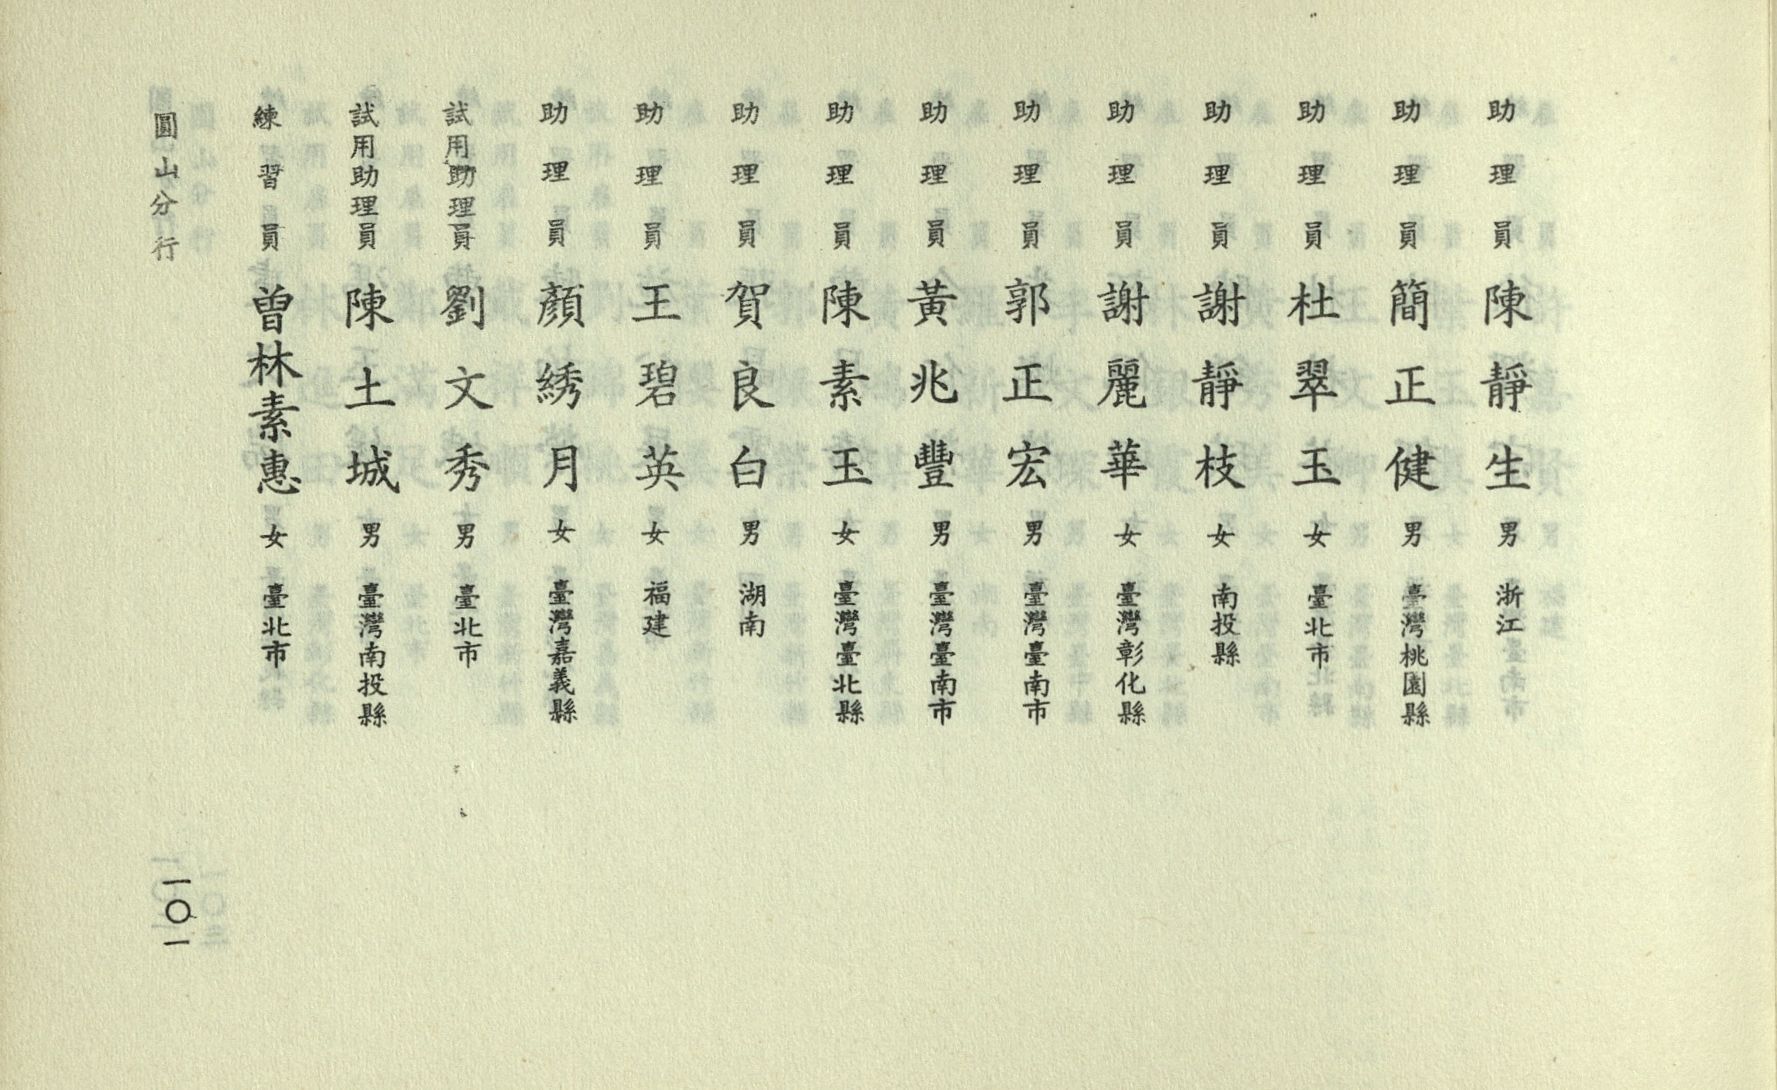 助理員 陳靜生 男 浙江
助理員 簡正健 男 臺灣桃園縣
助理員 杜翠玉 女 臺北市
助理員 謝靜枝 女 南投縣
助理員 謝麗華 女 臺灣彰化縣
助理員 郭正宏 男 臺灣臺南市
助理員 黃兆豐 男 臺灣臺南市
助理員 陳素玉 女 臺灣臺北縣
助理員 賀良白 男 湖南
助理員 王碧英 女 福建
助理員 顏綉月 女 臺灣嘉義縣
試用助理員 劉文秀 男 臺北市
試用助理員 陳土城 男 臺灣南投縣
練習員 曾林素惠 女 臺北市
圓山分行
一〇一